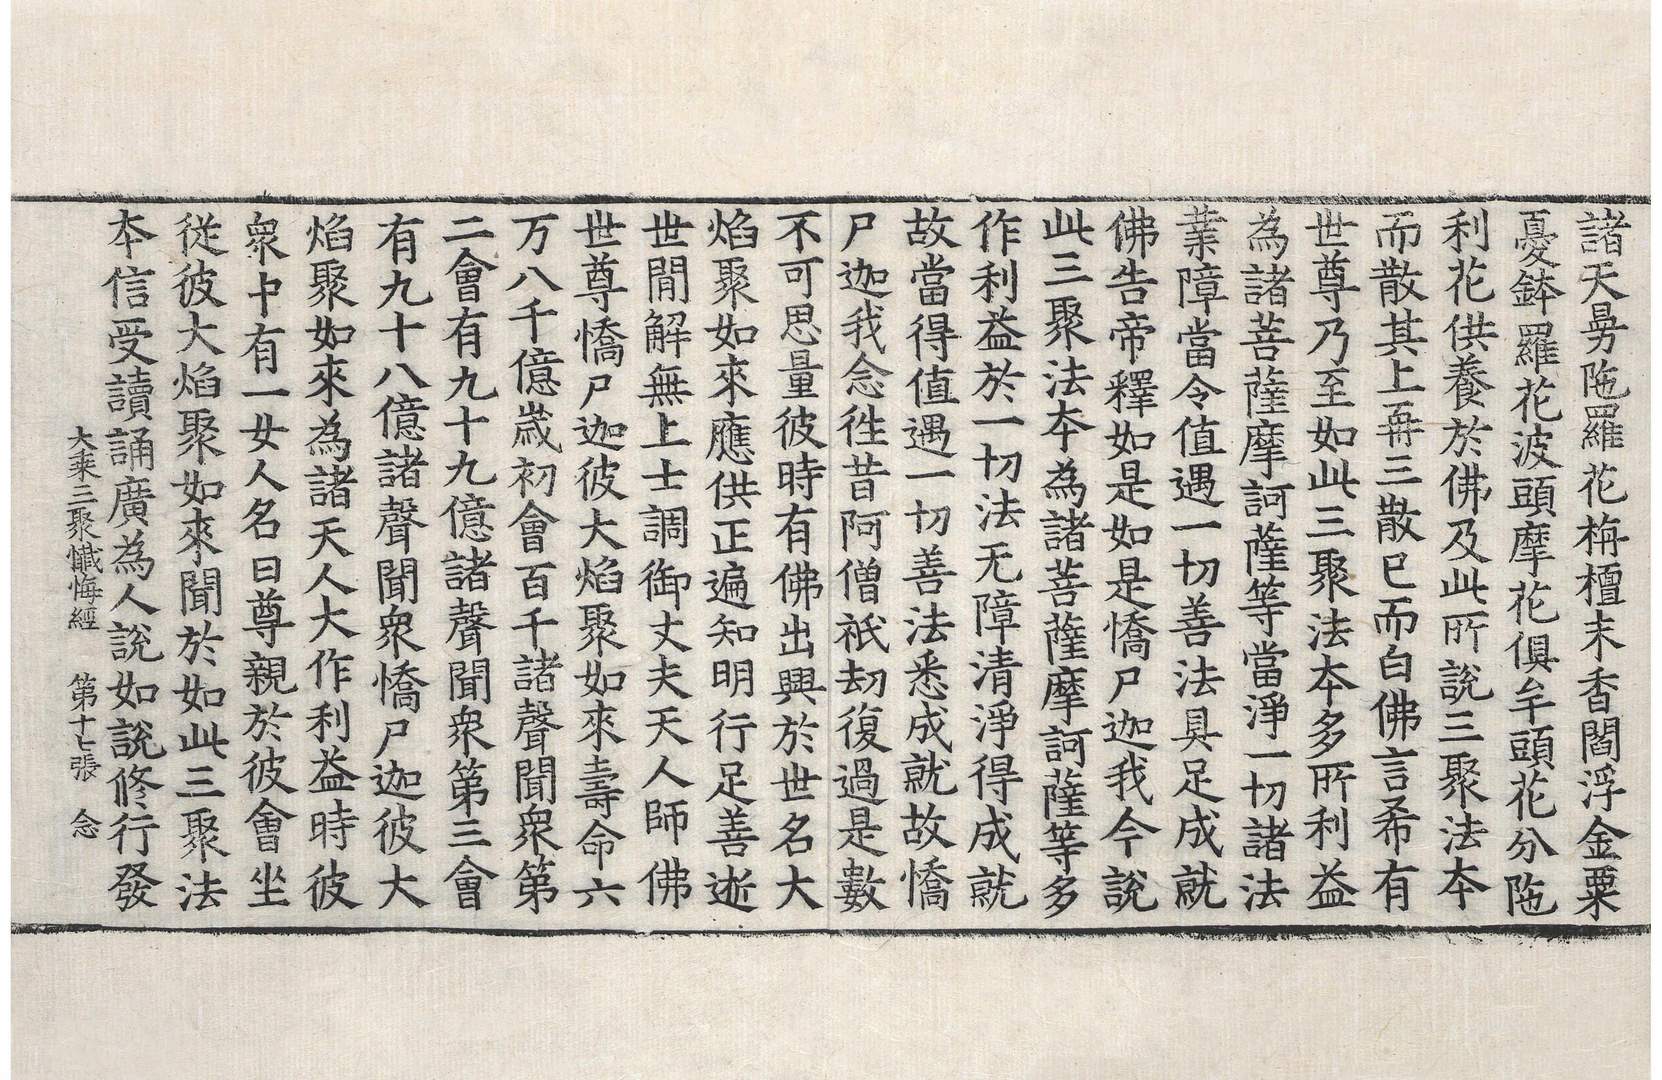 諸天曼陁羅花栴檀末香閻浮金粟
憂鉢羅花波頭摩花俱牟頭花分陁
利花供養於佛及此所說三聚法本
而散其上再三散已而白佛言希有
世尊乃至如此三聚法本多所利益
為諸菩薩摩訶薩等當淨一切諸法
業障當令值遇一切善法具足成就
佛告帝釋如是如是憍尸迦我今說
此三聚法本為諸菩薩摩訶薩等多
作利益於一切法无障清淨得成就
故當得值遇一切善法悉成就故憍
尸迦我念徃昔阿僧祇劫復過是數
不可思量彼時有佛出興於世名大
焰聚如來應供正遍知明行足善逝
世間解無上士調御丈夫天人師佛
世尊憍尸迦彼大焰聚如來壽命六
万八千億歲初會百千諸聲聞衆第
二會有九十九億諸聲聞衆第三會
有九十八億諸聲聞衆憍尸迦彼大
焰聚如來為諸天人大作利益時彼
衆中有一女人名曰尊親於彼會坐
從彼大焰聚如來聞於如此三聚法
本信受讀誦廣為人說如說修行發
大乘三聚懺悔經 第十七張 念